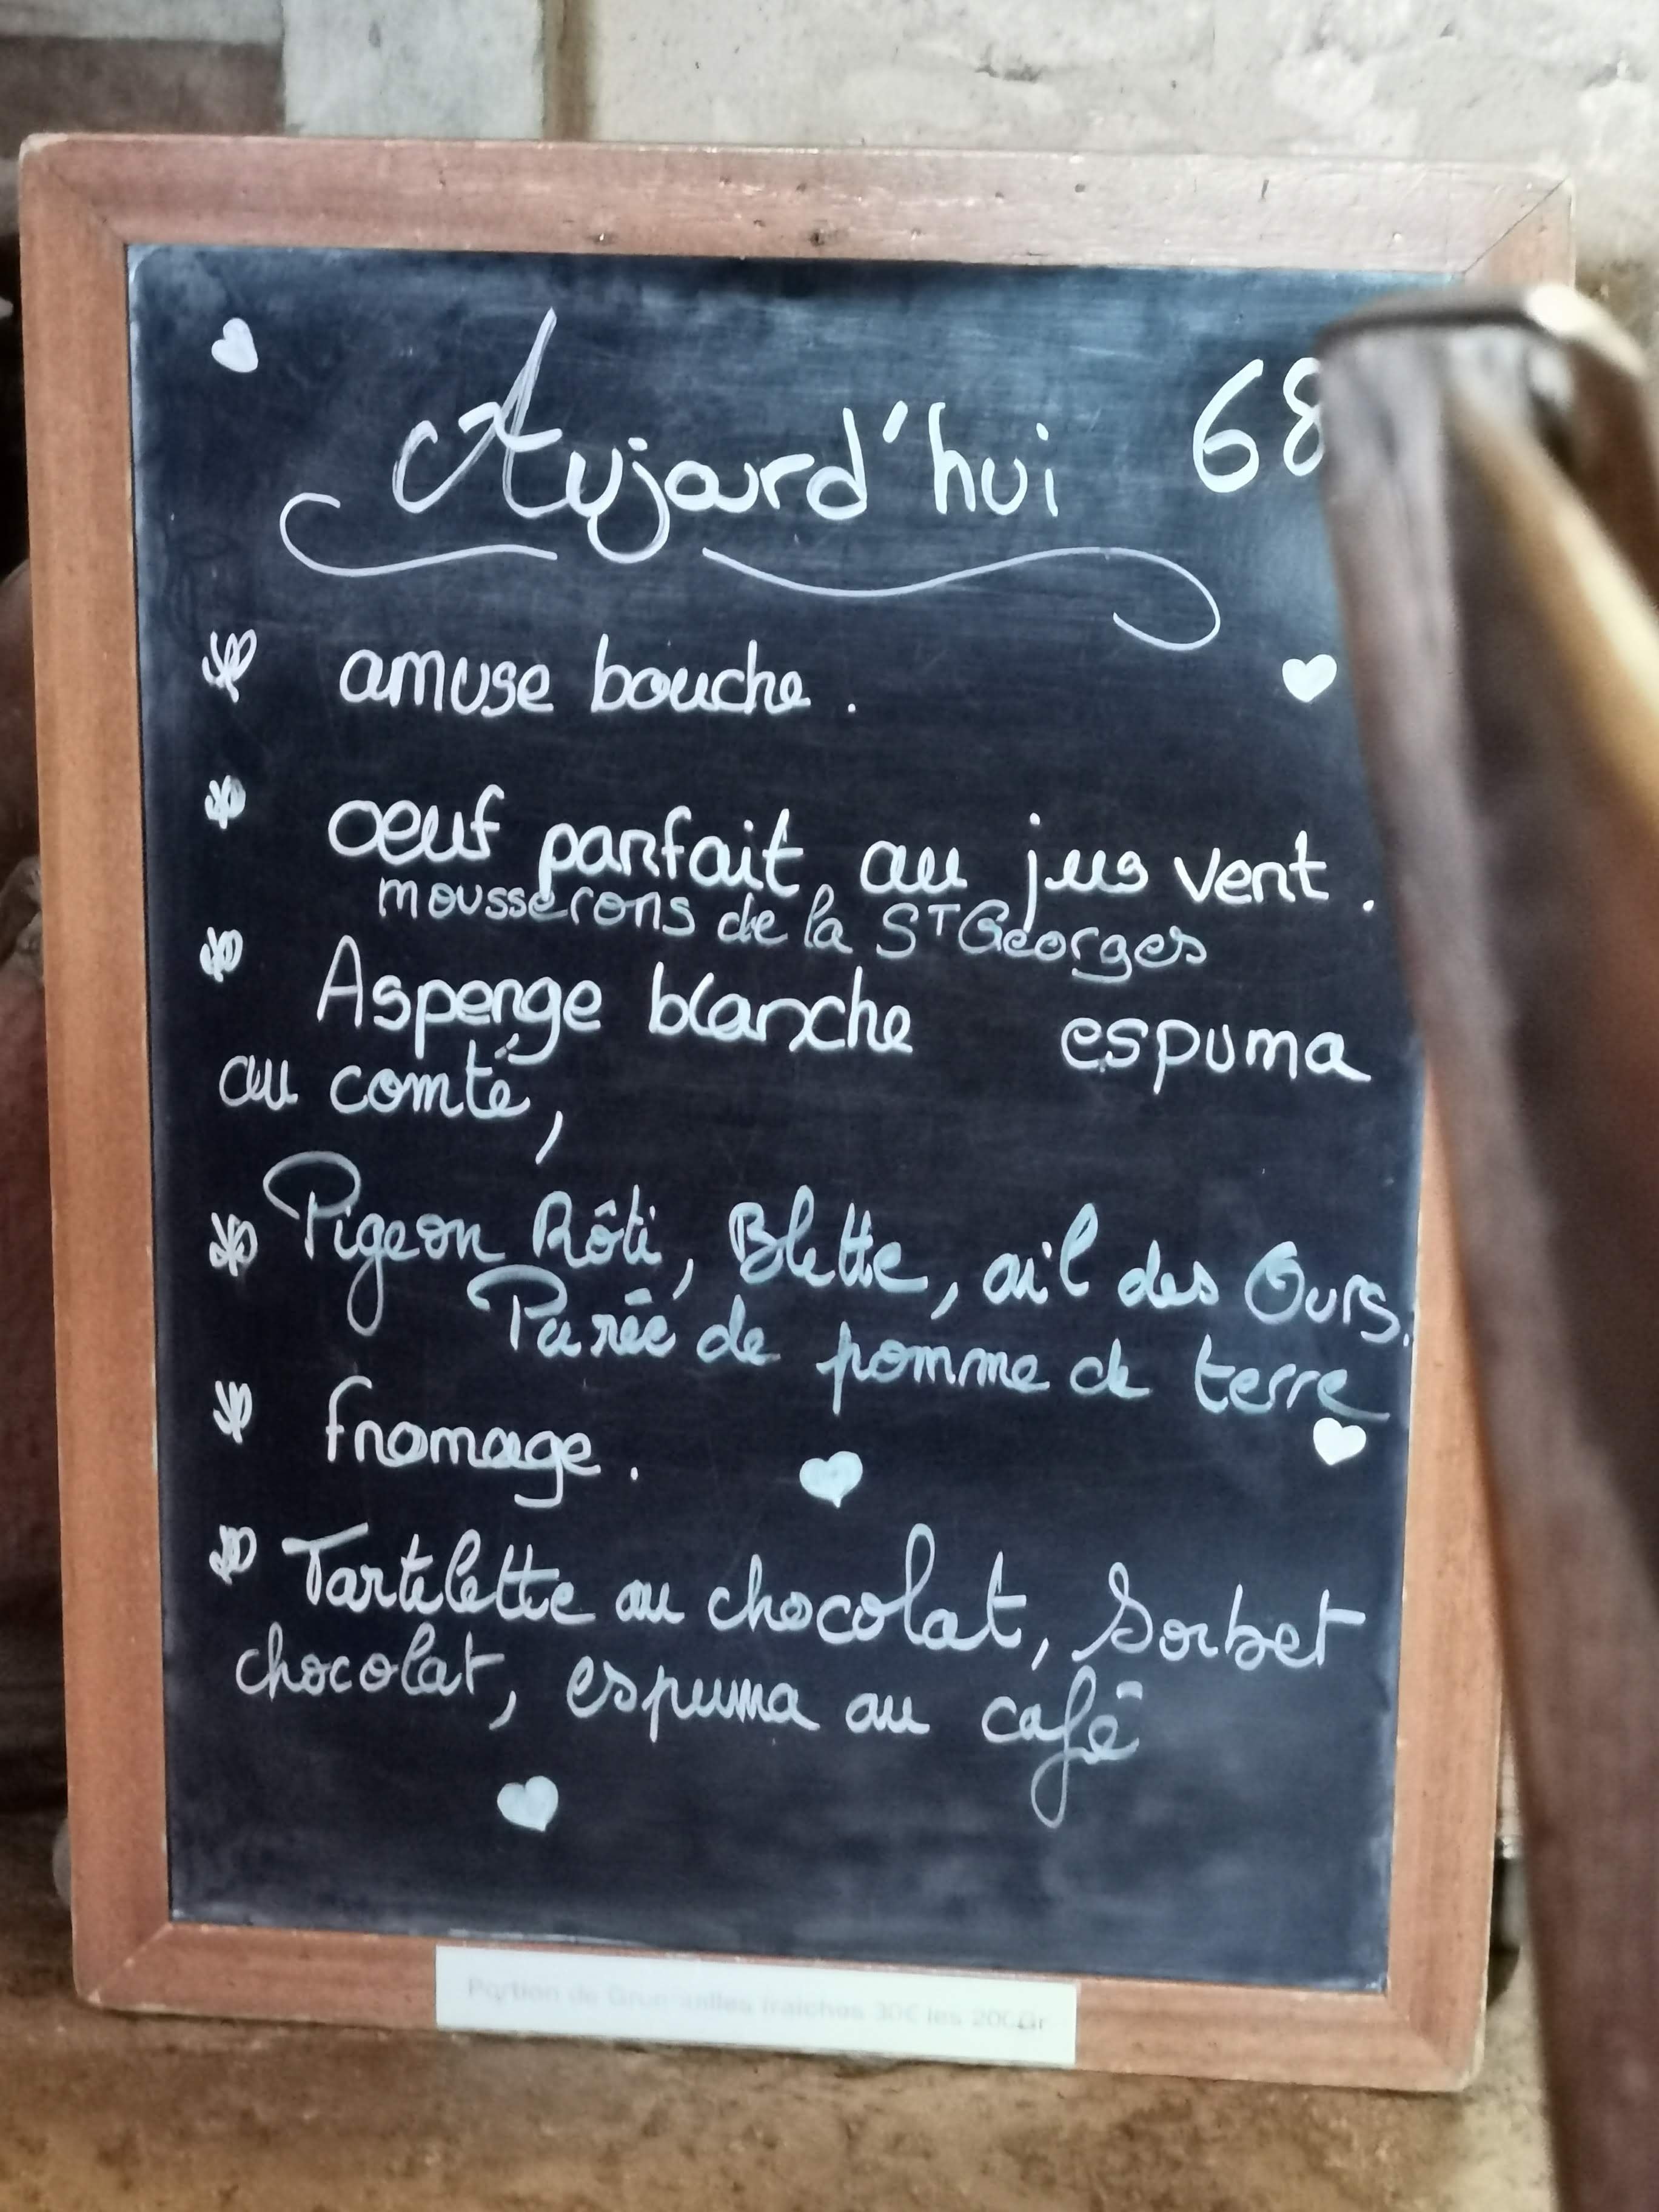 Aujourd'hui 68
amuse bouche.
oeuf parfait, au jus vert.
mousserons de la ST Georges
Asperge blanche espuma
au comté,
Pigeon Rôti, Blette, ail des Ours.
Purée de pomme de terre
fromage.
Tartelette au chocolat, Sorbet
chocolat, espuma au café
Portion de fraiches 30€ les 200Gr